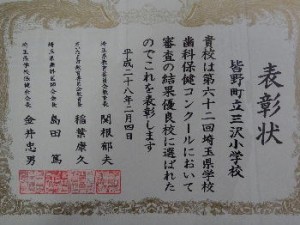 表彰状
皆野町立三沢小学校
貴校は第六十二回埼玉県学校
歯科保健コンクールにおいて
審査の結果優良校に選ばれた
のでこれを表彰します
平成二十八年二月四日
埼玉県教育委員会教育長 関根郁夫
さいたま市教育委員会教育長 稲葉康久
埼玉県歯科医師会会長 島田篤
埼玉県学校保健会会長 金井忠男